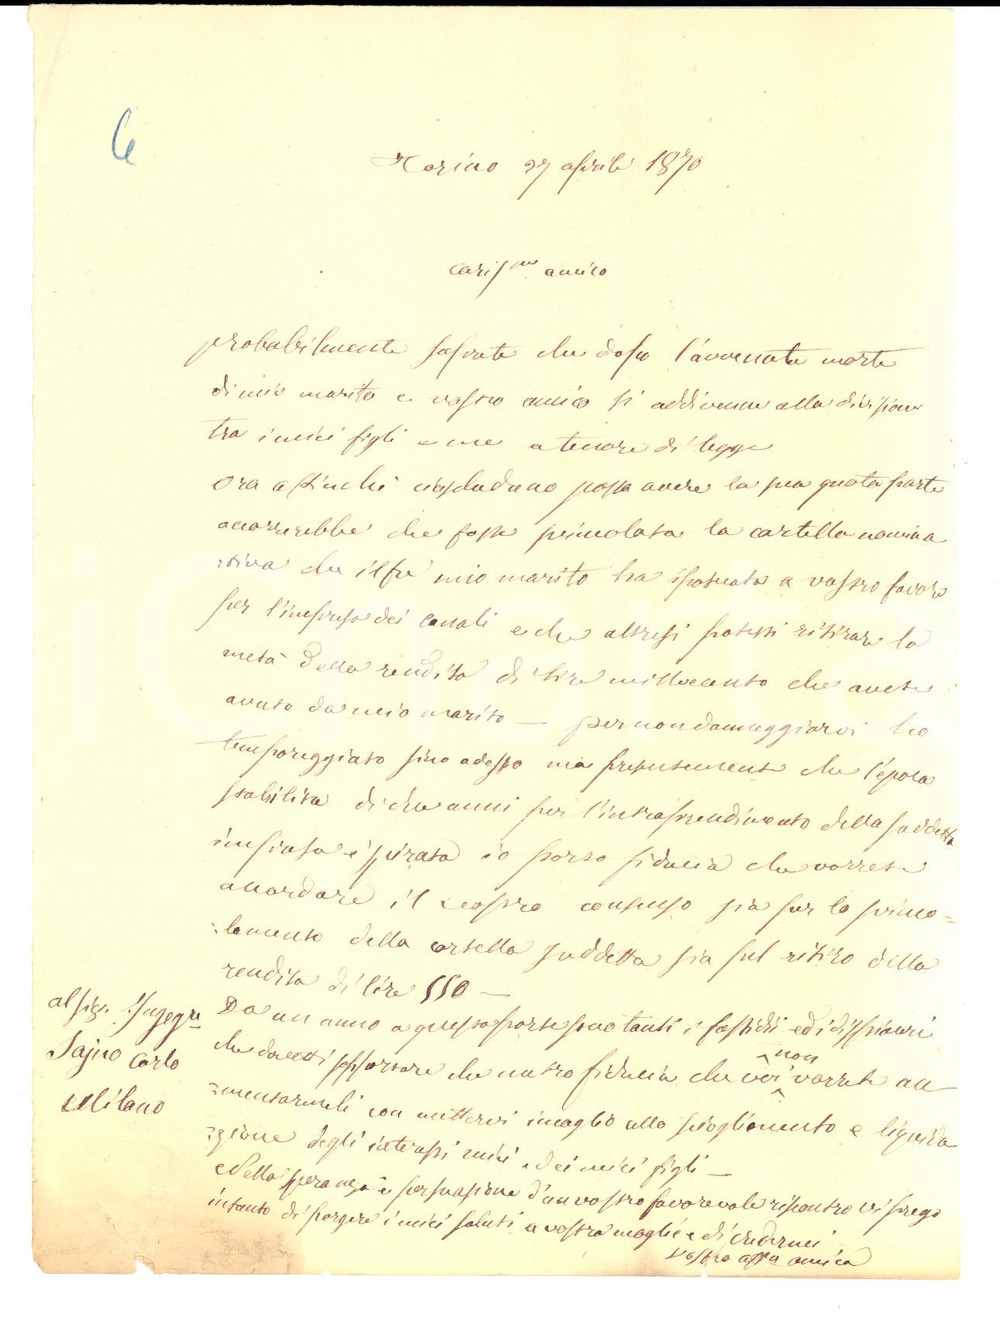 Torino 27 aprile 1870
caris.mo amico
probabilmente saprete che dopo l'avvenuta morte
di mio marito e vostro amico si addivenne alla division
tra i miei figli e me a tenore di legge
Ora affinchè possa avere la sua quota parte
occorrerebbe che fosse svincolata la cartella nomina
:tiva che il fu mio marito ha a vostro favore
per l'impresa dei canali e che altresi potessi ritirare la
metà della rendita di lire millecento che avete
avuto da mio marito — per non danneggiarvi ho
temporeggiato sino adesso ma che l'epoca
stabilita di due anni per l'intraprendimento della suddetta
impresa è spirata io porto fiducia che vorrete
accordare il vostro consenso sia per lo svinco-
:lamento della cartella suddetta sia pel ritiro della
rendita di lire 550 —
Da un anno a questa parte sono tanti i fastidi ed i dispiaceri
che dovetti sopportare che nutro fiducia che voi non vorrete au
:mentarmeli con mettervi incaglio allo scioglimento e liquida
:zione degli interessi miei e dei miei figli —
e nella speranza e persuasione d'un vostro favorevole riscontro vi prego
intanto di porgere i miei saluti a vostra moglie e di credermi
vostra aff.a amica
al sig. Ingegn.re
Sajno Carlo
Milano